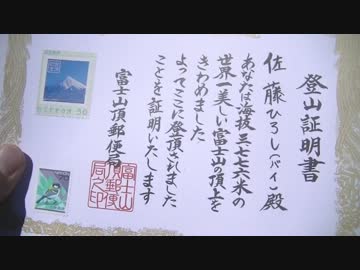 登山証明書
佐藤ひろし(パイ)殿
あなたは海抜三七七六米の
世界一美しい富士山の頂上を
きわめました
よってここに登頂されました
ことを証明いたします
富士山頂郵便局
富士山
頂郵便
局之印